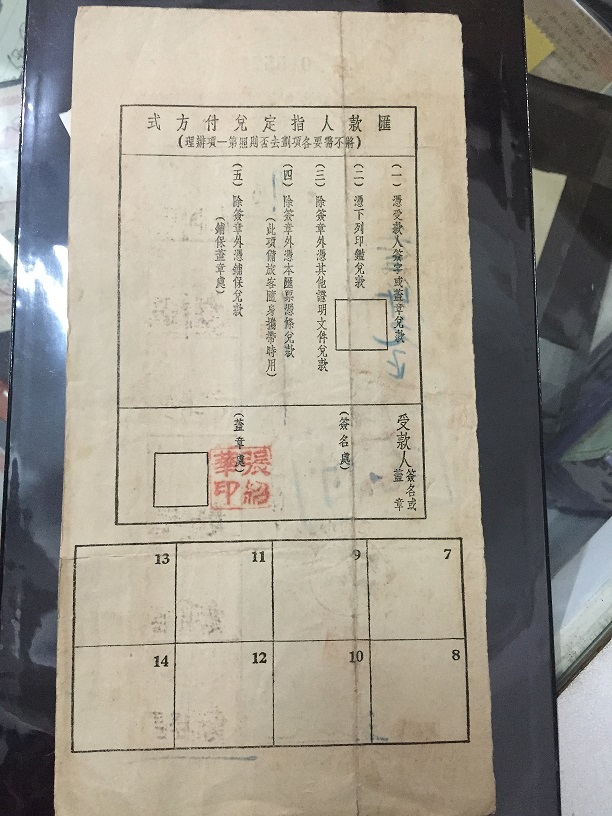 匯款人指定兌付方式
(將不需要各項劃去否則照第一項辦理)
(一) 憑受款人簽字或蓋章兌款
(二) 憑下列印鑑兌款
(三) 除簽章外憑其他證明文件兌款
(四) 除簽章外憑本匯票憑條兌款
(此項備旅客隨身攜帶時用)
(五) 除簽章外憑鋪保兌款
(鋪保蓋章處)
受款人簽名或蓋章
(簽名處)
(蓋章處)
張紹華印
13 11 9 7
14 12 10 8